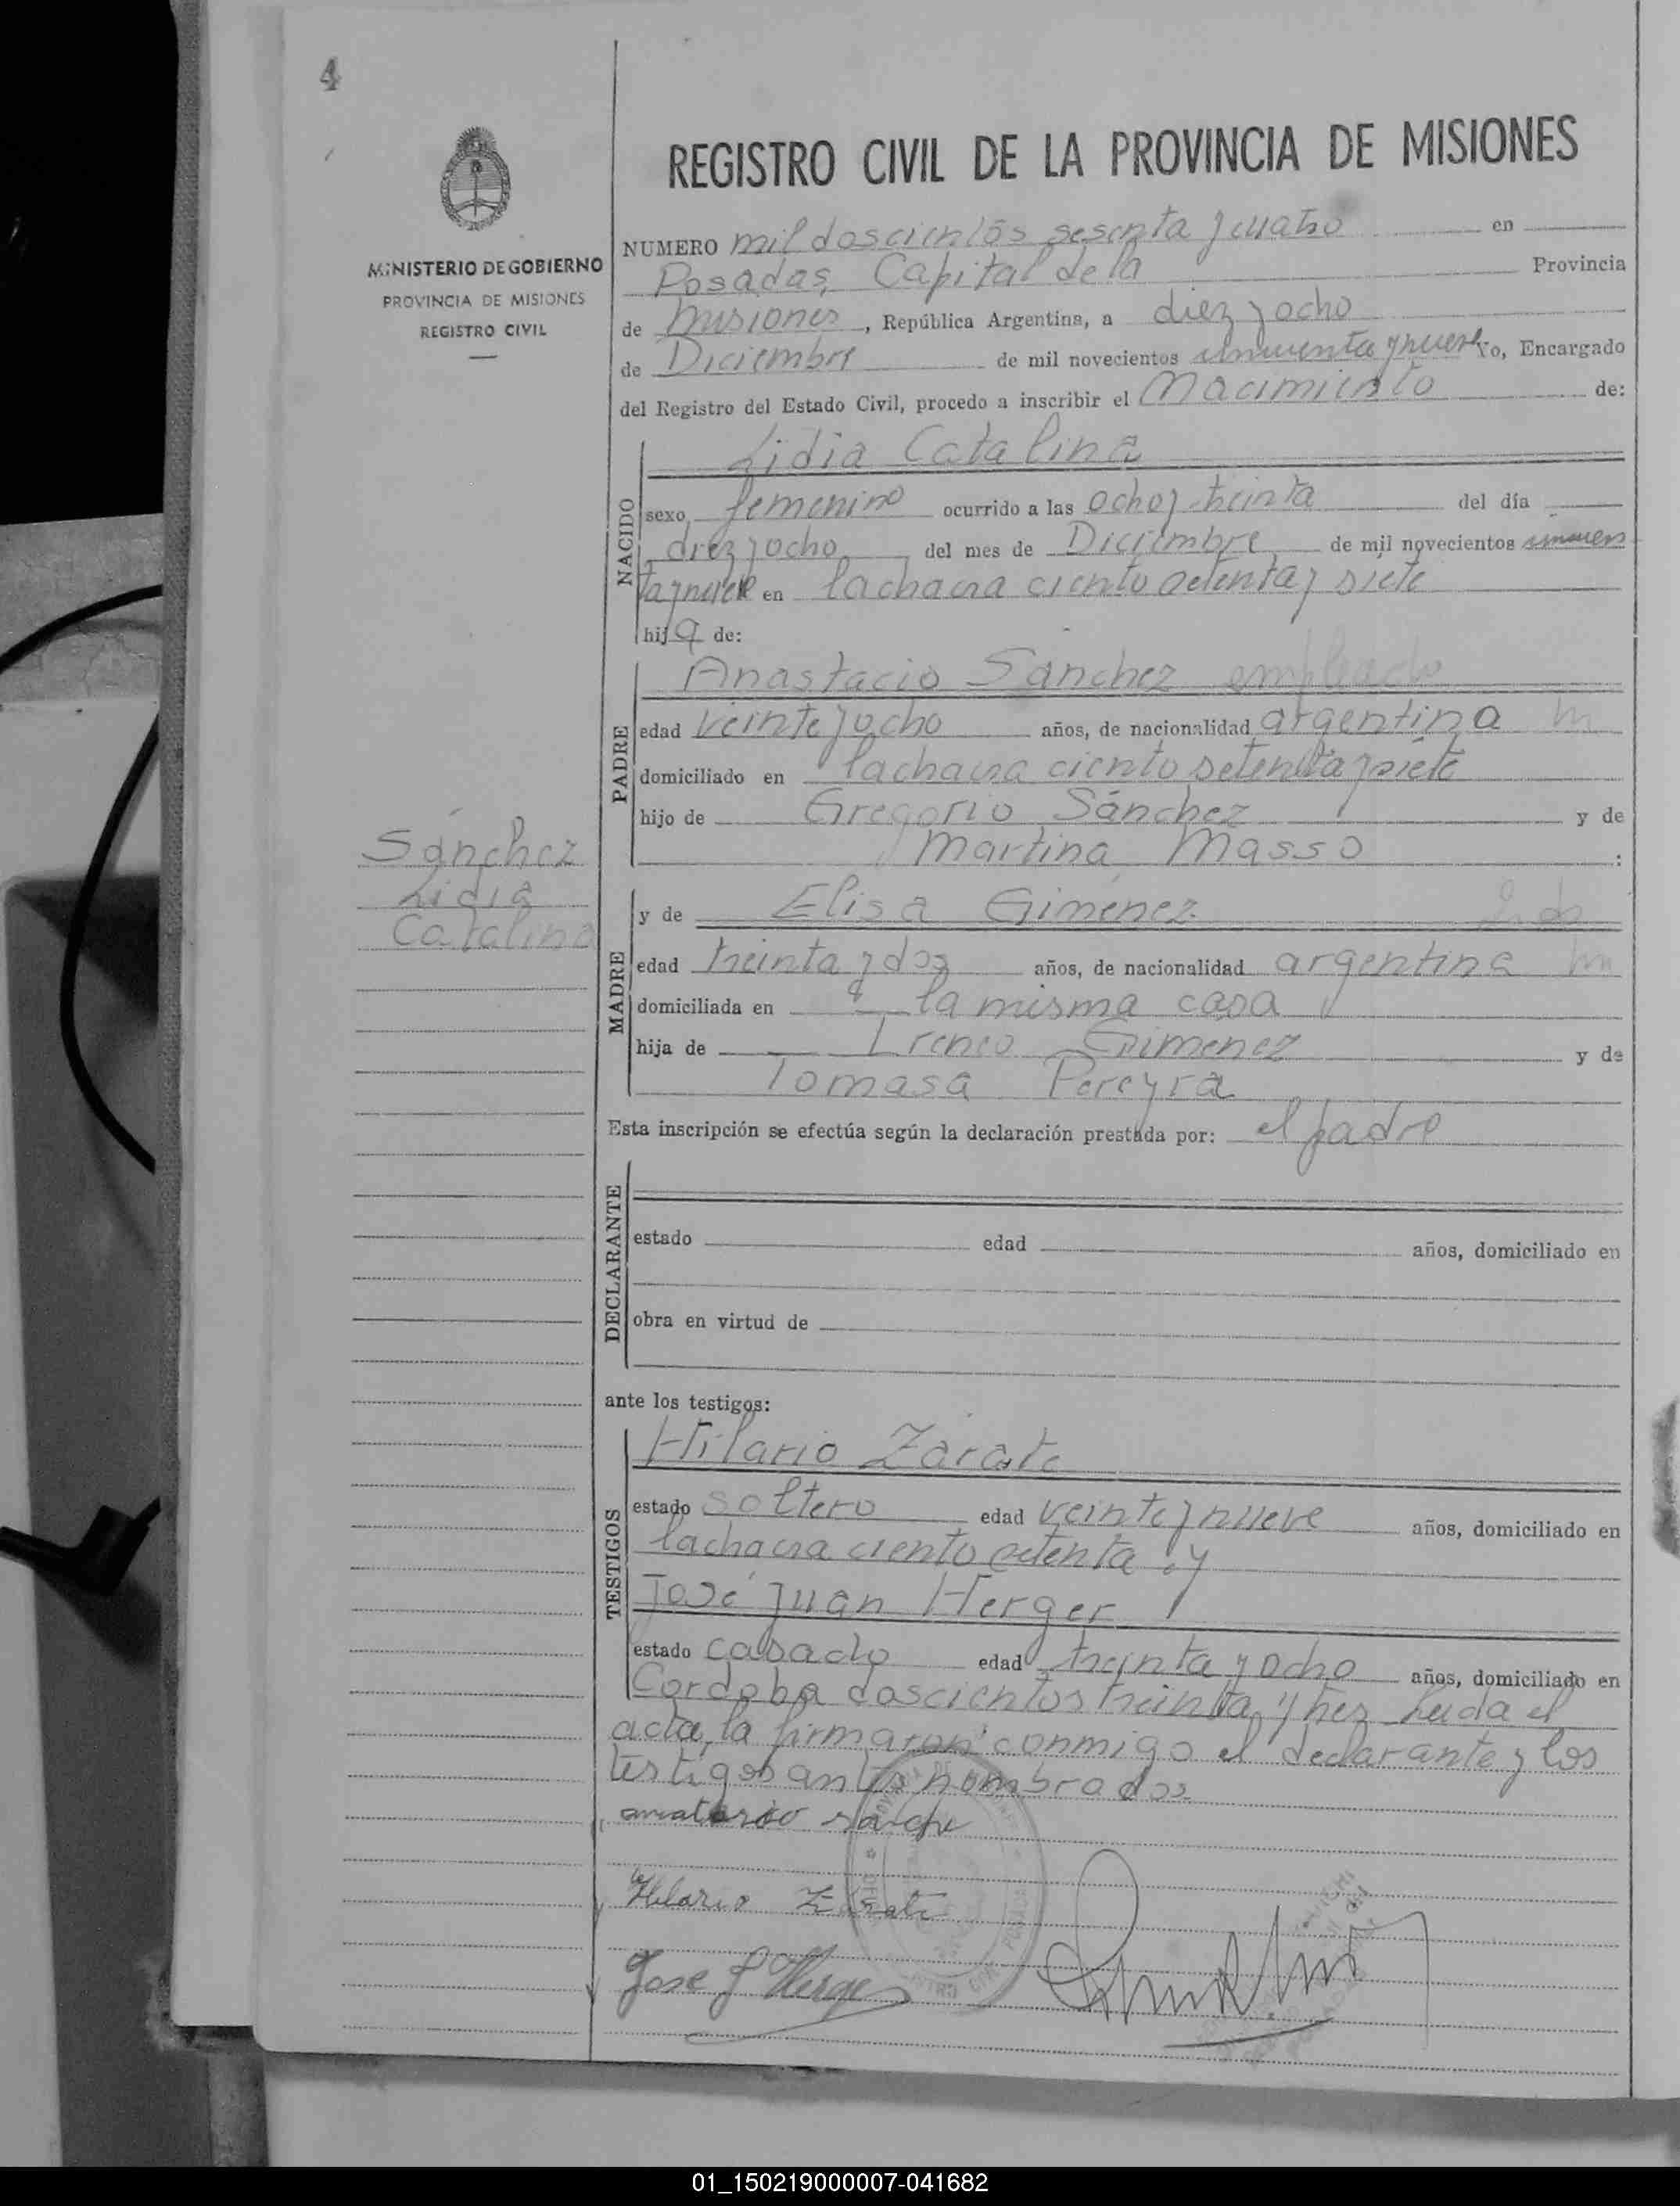 4
REGISTRO CIVIL DE LA PROVINCIA DE MISIONES
MINISTERIO DE GOBIERNO
PROVINCIA DE MISIONES
REGISTRO CIVIL
NUMERO mil doscientos sesenta y cuatro en
Posadas, Capital de la Provincia
de Misiones, República Argentina, a diez y ocho
de Diciembre de mil novecientos cincuenta y nueve yo, Encargado
del Registro del Estado Civil, procedo a inscribir el Nacimiento de:
NACIDO
Lidia Catalina
sexo femenino ocurrido a las ocho y treinta del día
diez y ocho del mes de Diciembre de mil novecientos cincuen
ta y nueve en la chacra ciento setenta y siete
hija de:
PADRE
Anastacio Sánchez empleado
edad veinte y ocho años, de nacionalidad argentina
domiciliado en la chacra ciento setenta y siete
hijo de Gregorio Sánchez y de
Martina Masso :
Sánchez
Lidia
Catalina
MADRE
y de Elisa Gimenez
edad treinta y dos años, de nacionalidad argentina
domiciliada en la misma casa
hija de Ireneo Gimenez y de
Tomasa Pereyra
Esta inscripción se efectúa según la declaración prestada por: el padre
DECLARANTE
estado edad años, domiciliado en
obra en virtud de
ante los testigos:
TESTIGOS
Hilario Zarate
estado soltero edad veinte y nueve años, domiciliado en
la chacra ciento setenta y
José Juan Herger
estado casado edad treinta y ocho años, domiciliado en
Cordoba doscientos treinta y tres Leida el
acta, la firmaron conmigo el declarante y los
testigos antes nombrados
Hilario Zarate
Jose J Herger
01_150219000007-041682